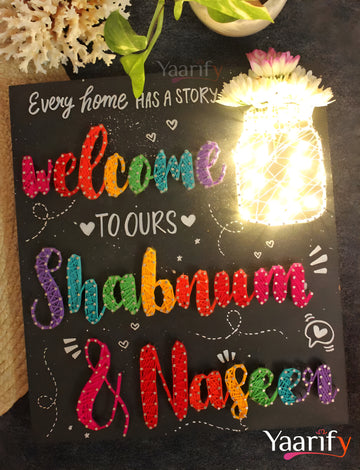 Yaarify
Every home HAS A STORY
welcome
TO OURS
Shabnum
& Naseen
Yaarify